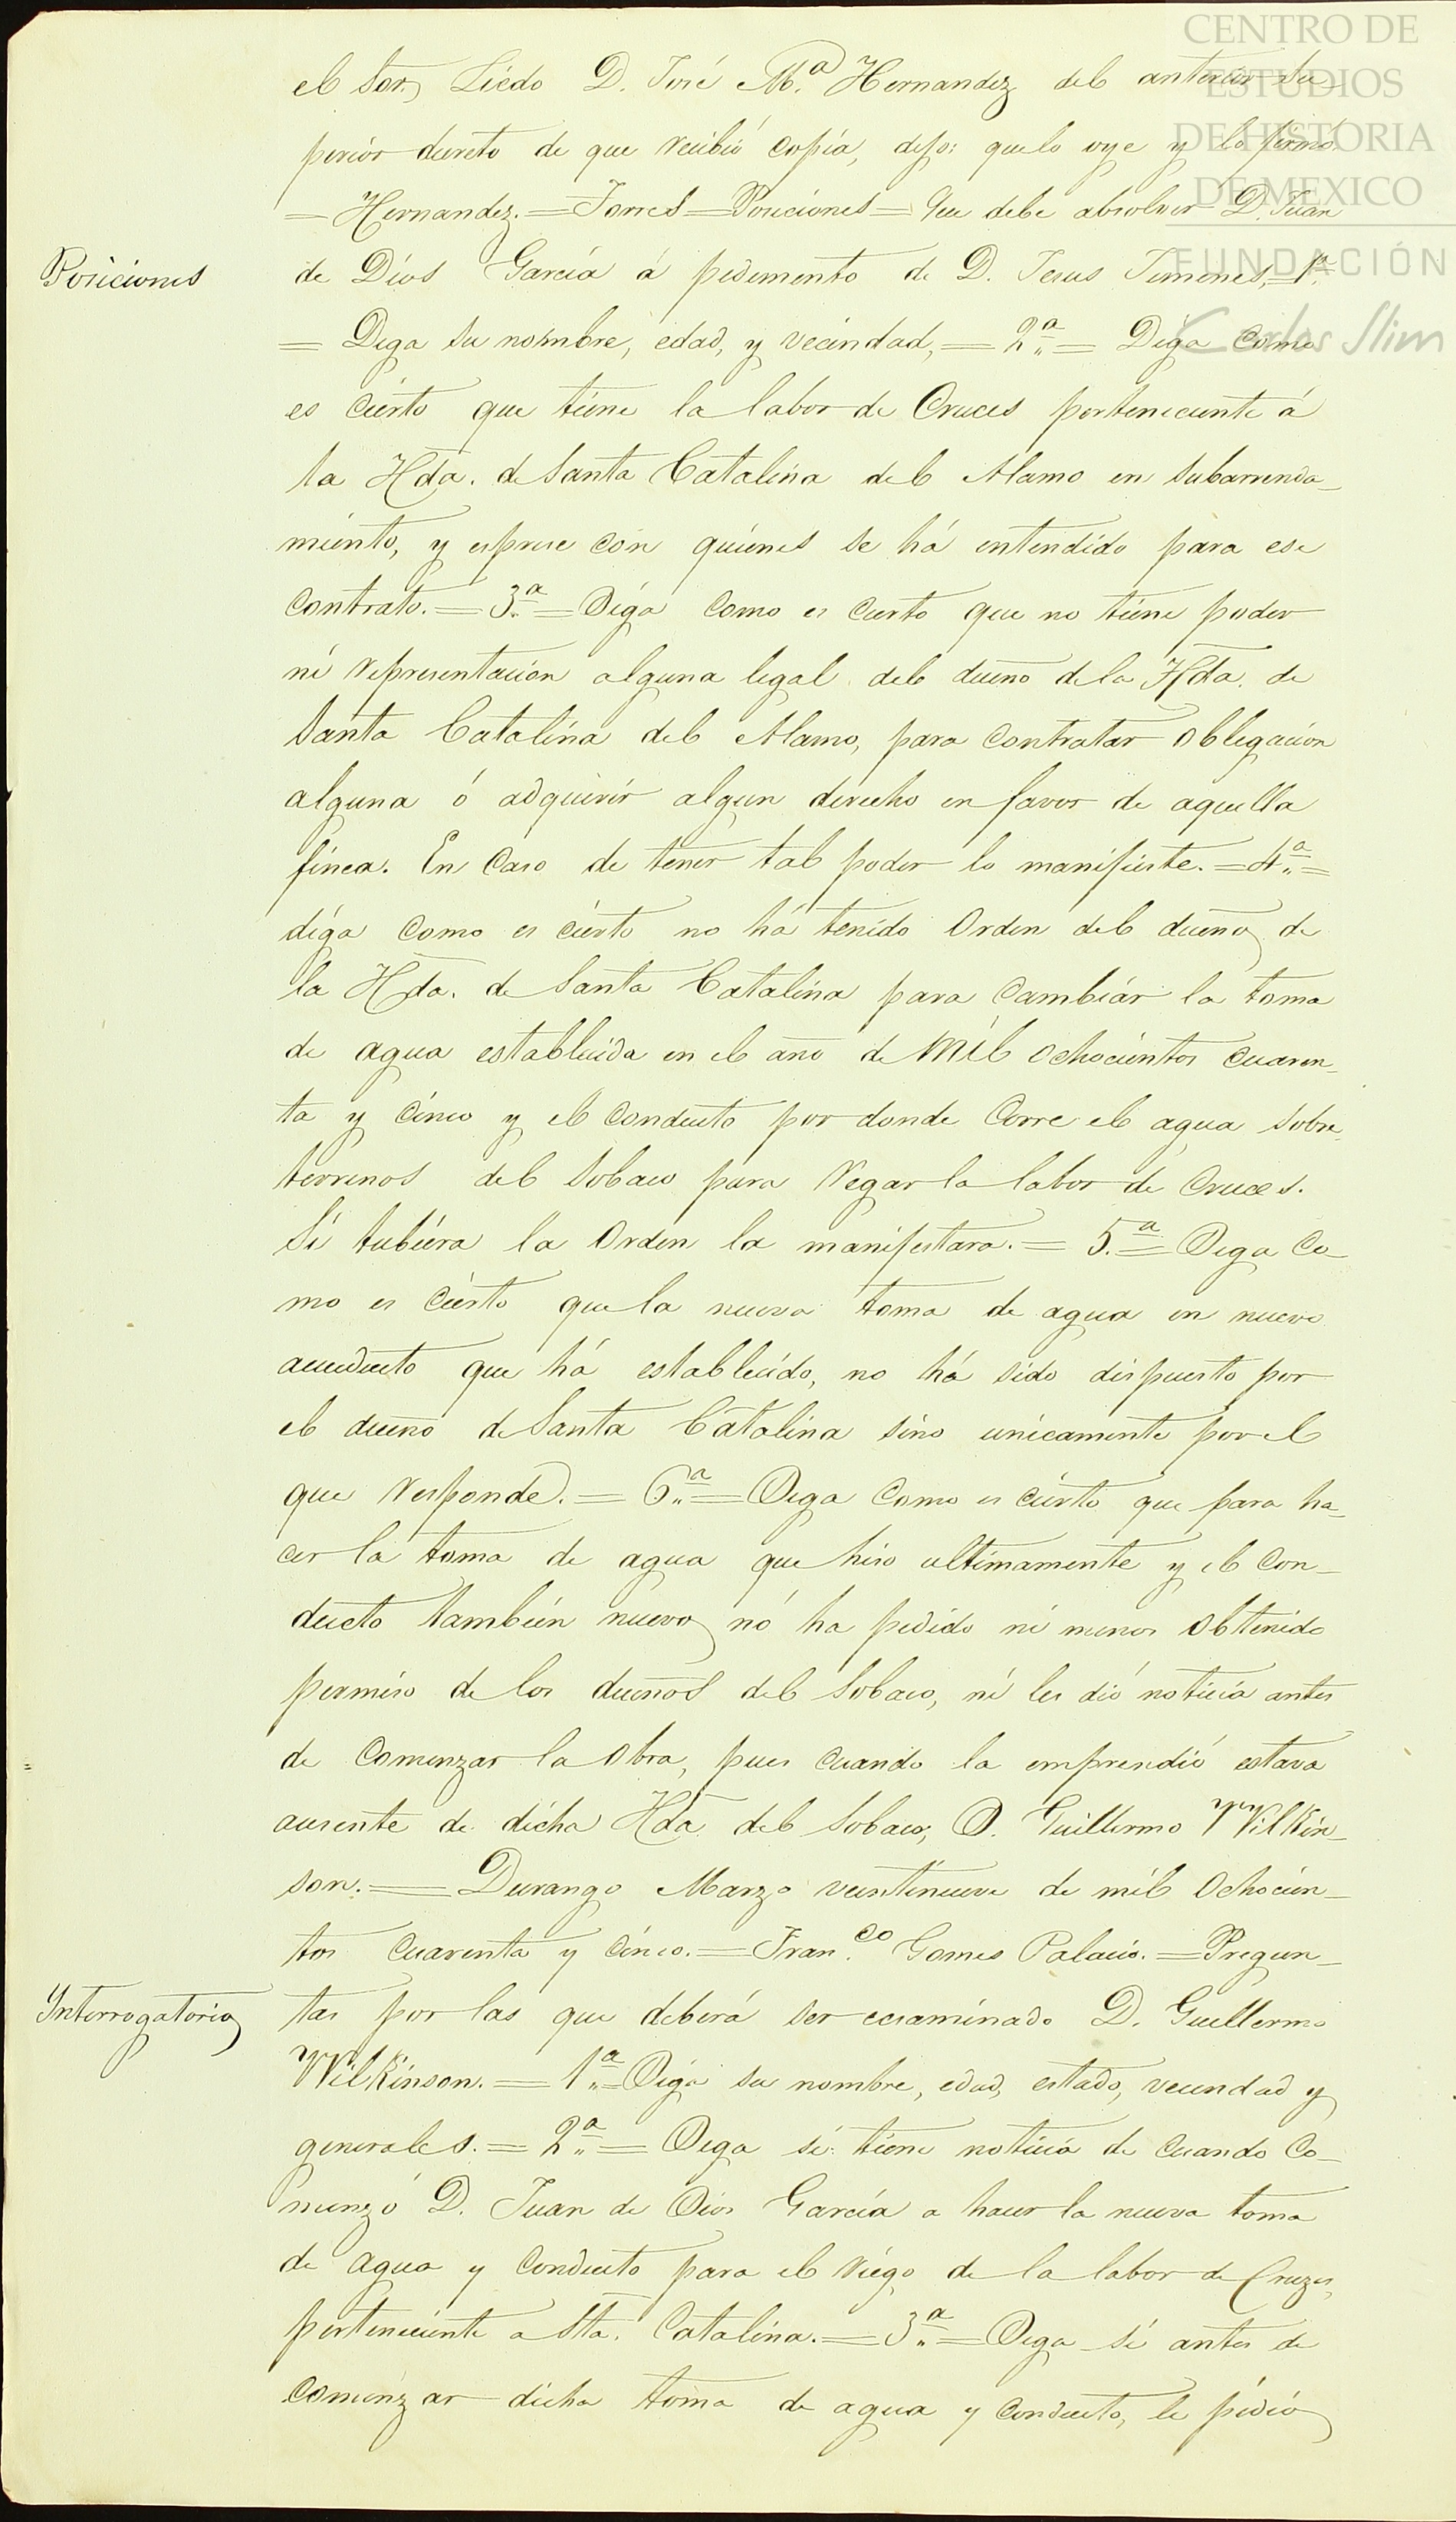 CENTRO DE
ESTUDIOS
DE HISTORIA
DE MEXICO
FUNDACIÓN
Carlos Slim
el Sor. Licdo D. José Ma. Hernandez del anterior su-
perior decreto de que recibió copia, dijo: que lo oye y lo firmó
= Hernandez. = Torres = Posiciones = Que debe absolver D. Juan
Posiciones
de Dios Garcia á pedimento de D. Jesus Jimenes, 1.a
= Diga su nombre, edad, y vecindad, = 2.a = Diga como
es cierto que tiene la labor de Cruces perteneciente á
la Hda. de Santa Catalina del Alamo en subarrenda-
miento, y esprese con quienes se há entendido para ese
contrato. = 3.a = Diga como es cierto que no tiene poder
ni representacion alguna legal del dueño de la Hda. de
Santa Catalina del Alamo, para contratar obligacion
alguna ó adquirir algun derecho en favor de aquella
finca. En caso de tener tal poder lo manifieste. = 4.a =
diga como es cierto no há tenido orden del dueño de
la Hda. de Santa Catalina para cambiar la toma
de agua establecida en el año de mil ochocientos cuaren-
ta y cinco y el conducto por donde corre el agua sobre
terrenos del Sobaco para regar la labor de Cruces.
Si tubiera la orden la manifestara. = 5.a = Diga co-
mo es cierto que la nueva toma de agua en nuevo
acueducto que há establecido, no há sido dispuesto por
el dueño de Santa Catalina sino unicamente por el
que responde. = 6.a = Diga como es cierto que para ha-
cer la toma de agua que hiso ultimamente y el con-
ducto tambien nuevo nó ha pedido ni menos obtenido
permiso de los dueños del Sobaco, ni les dió noticia antes
de comenzar la obra, pues cuando la emprendió estava
ausente de dicha Hda del Sobaco, D. Guillermo Wilkin-
son. = Durango Marzo veintinueve de mil ochocien-
tos cuarenta y cinco. = Fran.co Gomes Palacio. = Pregun-
Interrogatorio
tas por las que deberá ser ecsaminado D. Guillermo
Wilkinson. = 1.a = Diga su nombre, edad, estado, vecindad y
generales. = 2.a = Diga si tiene noticia de cuando co-
menzó D. Juan de Dios Garcia a hacer la nueva toma
de agua y conducto para el riego de la labor de Cruzes,
perteneciente a Sta. Catalina. = 3.a = Diga si antes de
comenzar dicha toma de agua y conducto, le pidió